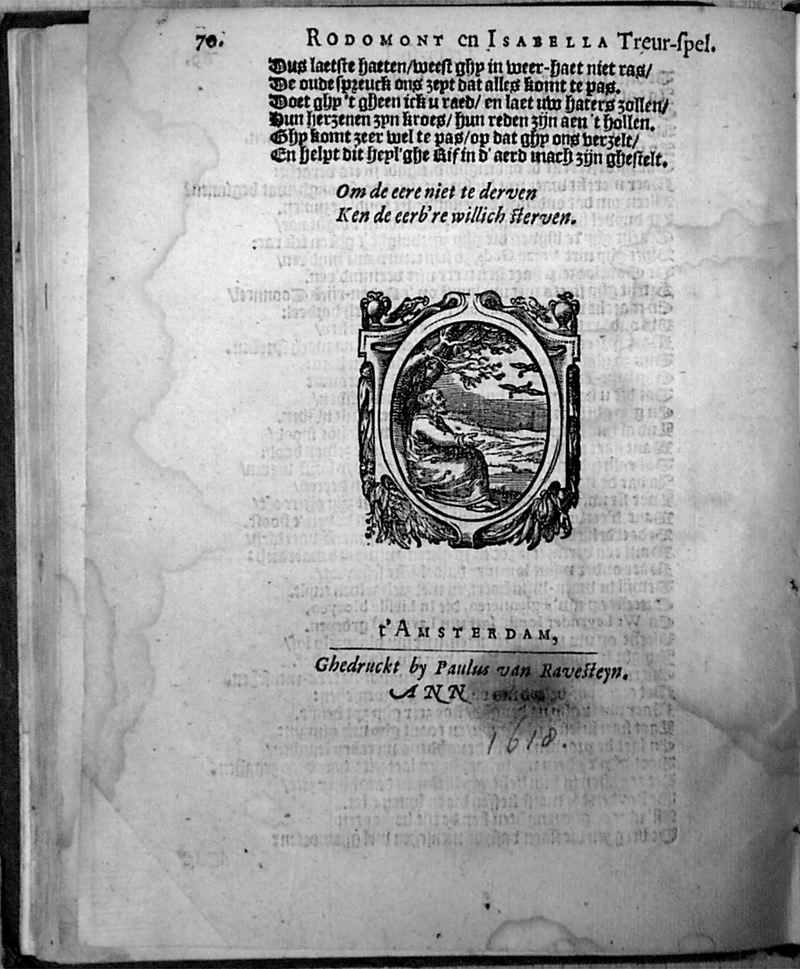 70. RODOMONT en ISABELLA Treur-spel.
Dus laetste haeten/weest ghy in weer-haet niet ras/
De oude spreuck ons zeyt dat alles komt te pas.
Doet ghy 't gheen ick u raed/ en laet uw haters zollen/
Hun herzenen zyn kroes/ hun reden zijn aen 't hollen.
Ghy komt zeer wel te pas/op dat ghy ons verzelt/
En helpt dit heyl'ghe Rif in d'aerd mach zijn ghestelt.
Om de eere niet te derven
Ken de eerb're willich sterven.
t'AMSTERDAM,
Ghedruckt by Paulus van Ravesteyn.
ANN
1618.